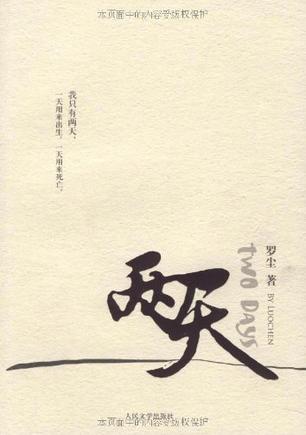 本页面中的内容受版权保护
我只有两天，
一天用来出生，一天用来死亡。
两天
TWO DAYS
罗尘 著
BY LUOCHEN
人民文学出版社
本页面中的内容受版权保护